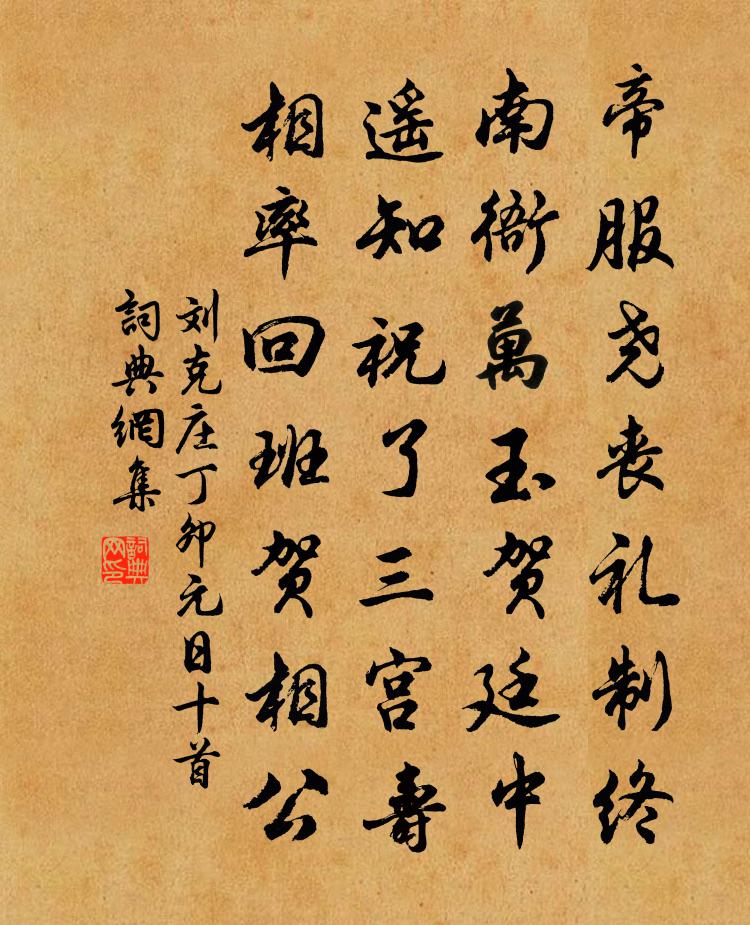 帝服尧丧礼制终
南衙萬玉贺廷中
遥知祝了三宫壽
相率回班贺相公
刘克庄丁卯元日十首
詞典網集
詞典网印